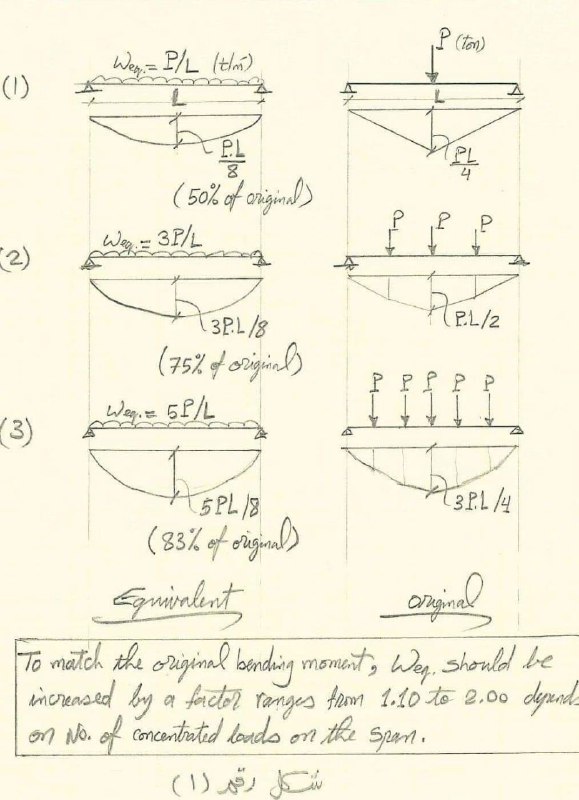 (1)
Weq. = P/L (t/m)
L
P.L/8
(50% of original)
P (ton)
L
PL/4
(2)
Weq. = 3P/L
3P.L/8
(75% of original)
P P P
P.L/2
(3)
Weq. = 5P/L
5P.L/8
(83% of original)
P P P P P
3P.L/4
Equivalent
original
To match the original bending moment, Weq. should be
increased by a factor ranges from 1.10 to 2.00 depends
on No. of concentrated loads on the span.
شكل رقم (١)